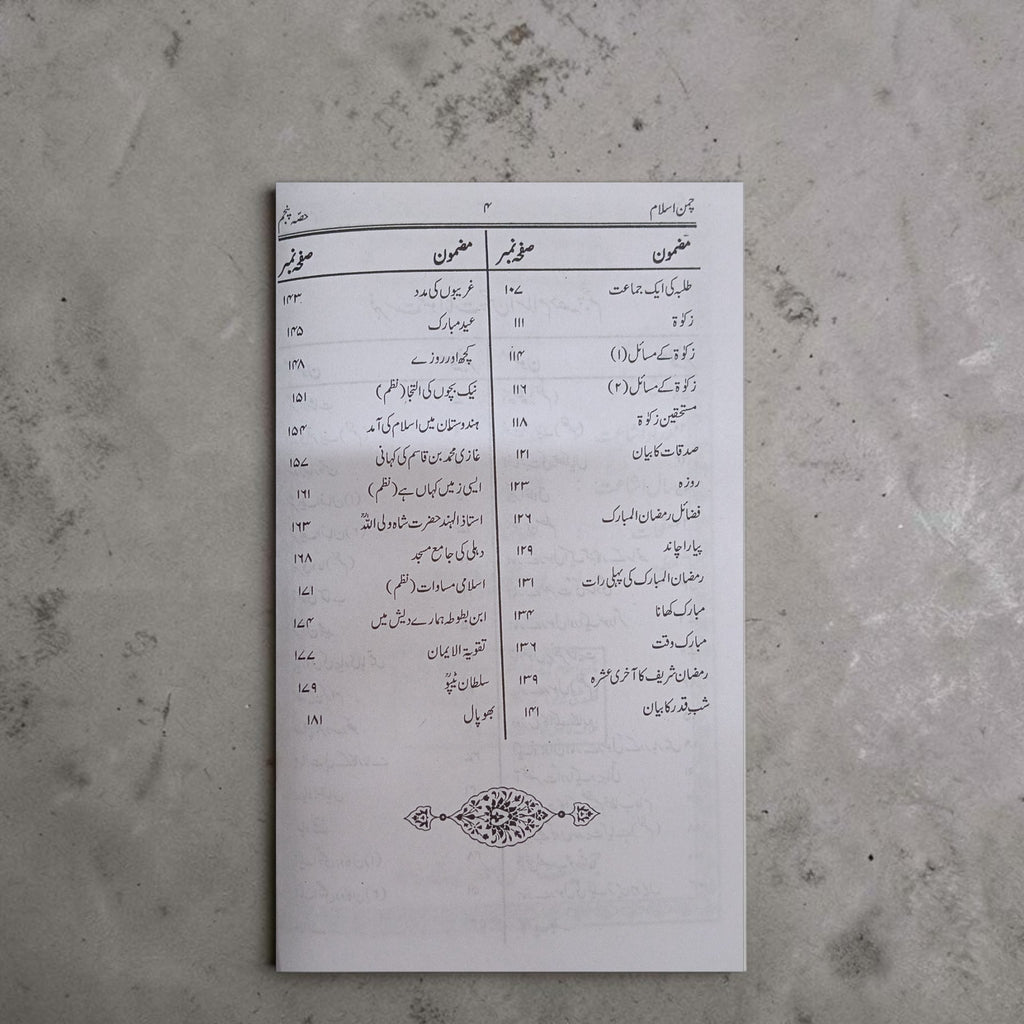 چمن اسلام ۴ حصّہ پنجم
مضمون صفحہ نمبر
طلبہ کی ایک جماعت ۱۰۷
زکوٰۃ ۱۱۱
زکوٰۃ کے مسائل (۱) ۱۱۴
زکوٰۃ کے مسائل (۲) ۱۱۶
مستحقین زکوٰۃ ۱۱۸
صدقات کا بیان ۱۲۱
روزہ ۱۲۳
فضائل رمضان المبارک ۱۲۶
پیارا چاند ۱۲۹
رمضان المبارک کی پہلی رات ۱۳۱
مبارک کھانا ۱۳۴
مبارک وقت ۱۳۶
رمضان شریف کا آخری عشرہ ۱۳۹
شبِ قدر کا بیان ۱۴۱
مضمون صفحہ نمبر
غریبوں کی مدد ۱۴۳
عید مبارک ۱۴۵
کچھ اور روزے ۱۴۸
نیک بچوں کی التجا (نظم) ۱۵۱
ہندوستان میں اسلام کی آمد ۱۵۴
غازی محمد بن قاسم کی کہانی ۱۵۷
ایسی زمیں کہاں ہے (نظم) ۱۶۱
استاذ الہند حضرت شاہ ولی اللہؒ ۱۶۳
دہلی کی جامع مسجد ۱۶۸
اسلامی مساوات (نظم) ۱۷۱
ابن بطوطہ ہمارے دیش میں ۱۷۴
تقویۃ الایمان ۱۷۷
سلطان ٹیپوؒ ۱۷۹
بھوپال ۱۸۱